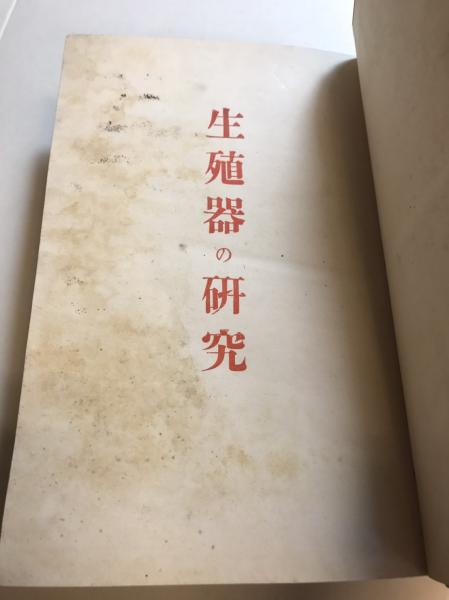 生殖器の研究